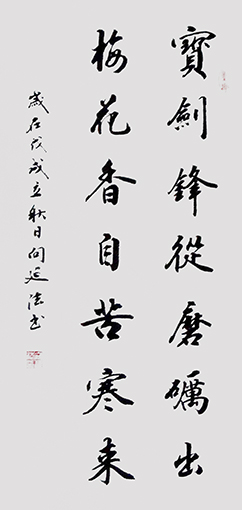 寶劍鋒從磨礪出
梅花香自苦寒来
歲在戊戌立秋日向延法书